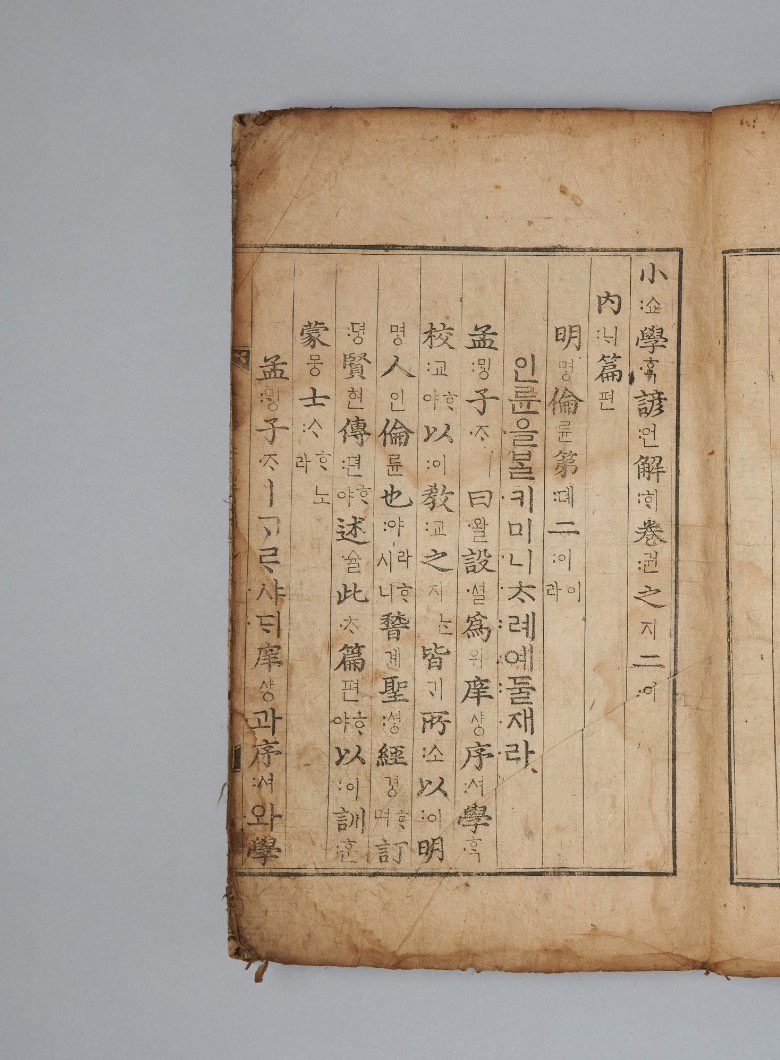 小:쇼學·ᄒᆞᆨ諺:언解:ᄒᆡ卷:권之지二:이
內:ᄂᆡ篇편
明명倫륜第:뎨二:이이라
인륜을ᄇᆞᆯ키미니ᄎᆞ례예둘재라
孟:ᄆᆡᆼ子·ᄌᆞ曰·왈設·셜爲위庠샹序:셔學·ᄒᆞᆨ
校:교ᄒᆞ야以:이敎:교之지ᄂᆞᆫ皆ᄀᆡ所:소以:이明
명人인倫륜也:야ㅣ라ᄒᆞ시니稽계聖:셩經경ᄒᆞ며訂
뎡賢현傳:뎐ᄒᆞ야述·슐此·ᄎᆞ篇편ᄒᆞ야以:이訓:훈
蒙몽士:ᄉᆞᄒᆞ노라
孟:ᄆᆡᆼ子·ᄌᆞㅣᄀᆞᄅᆞ샤ᄃᆡ庠샹과序:셔와學